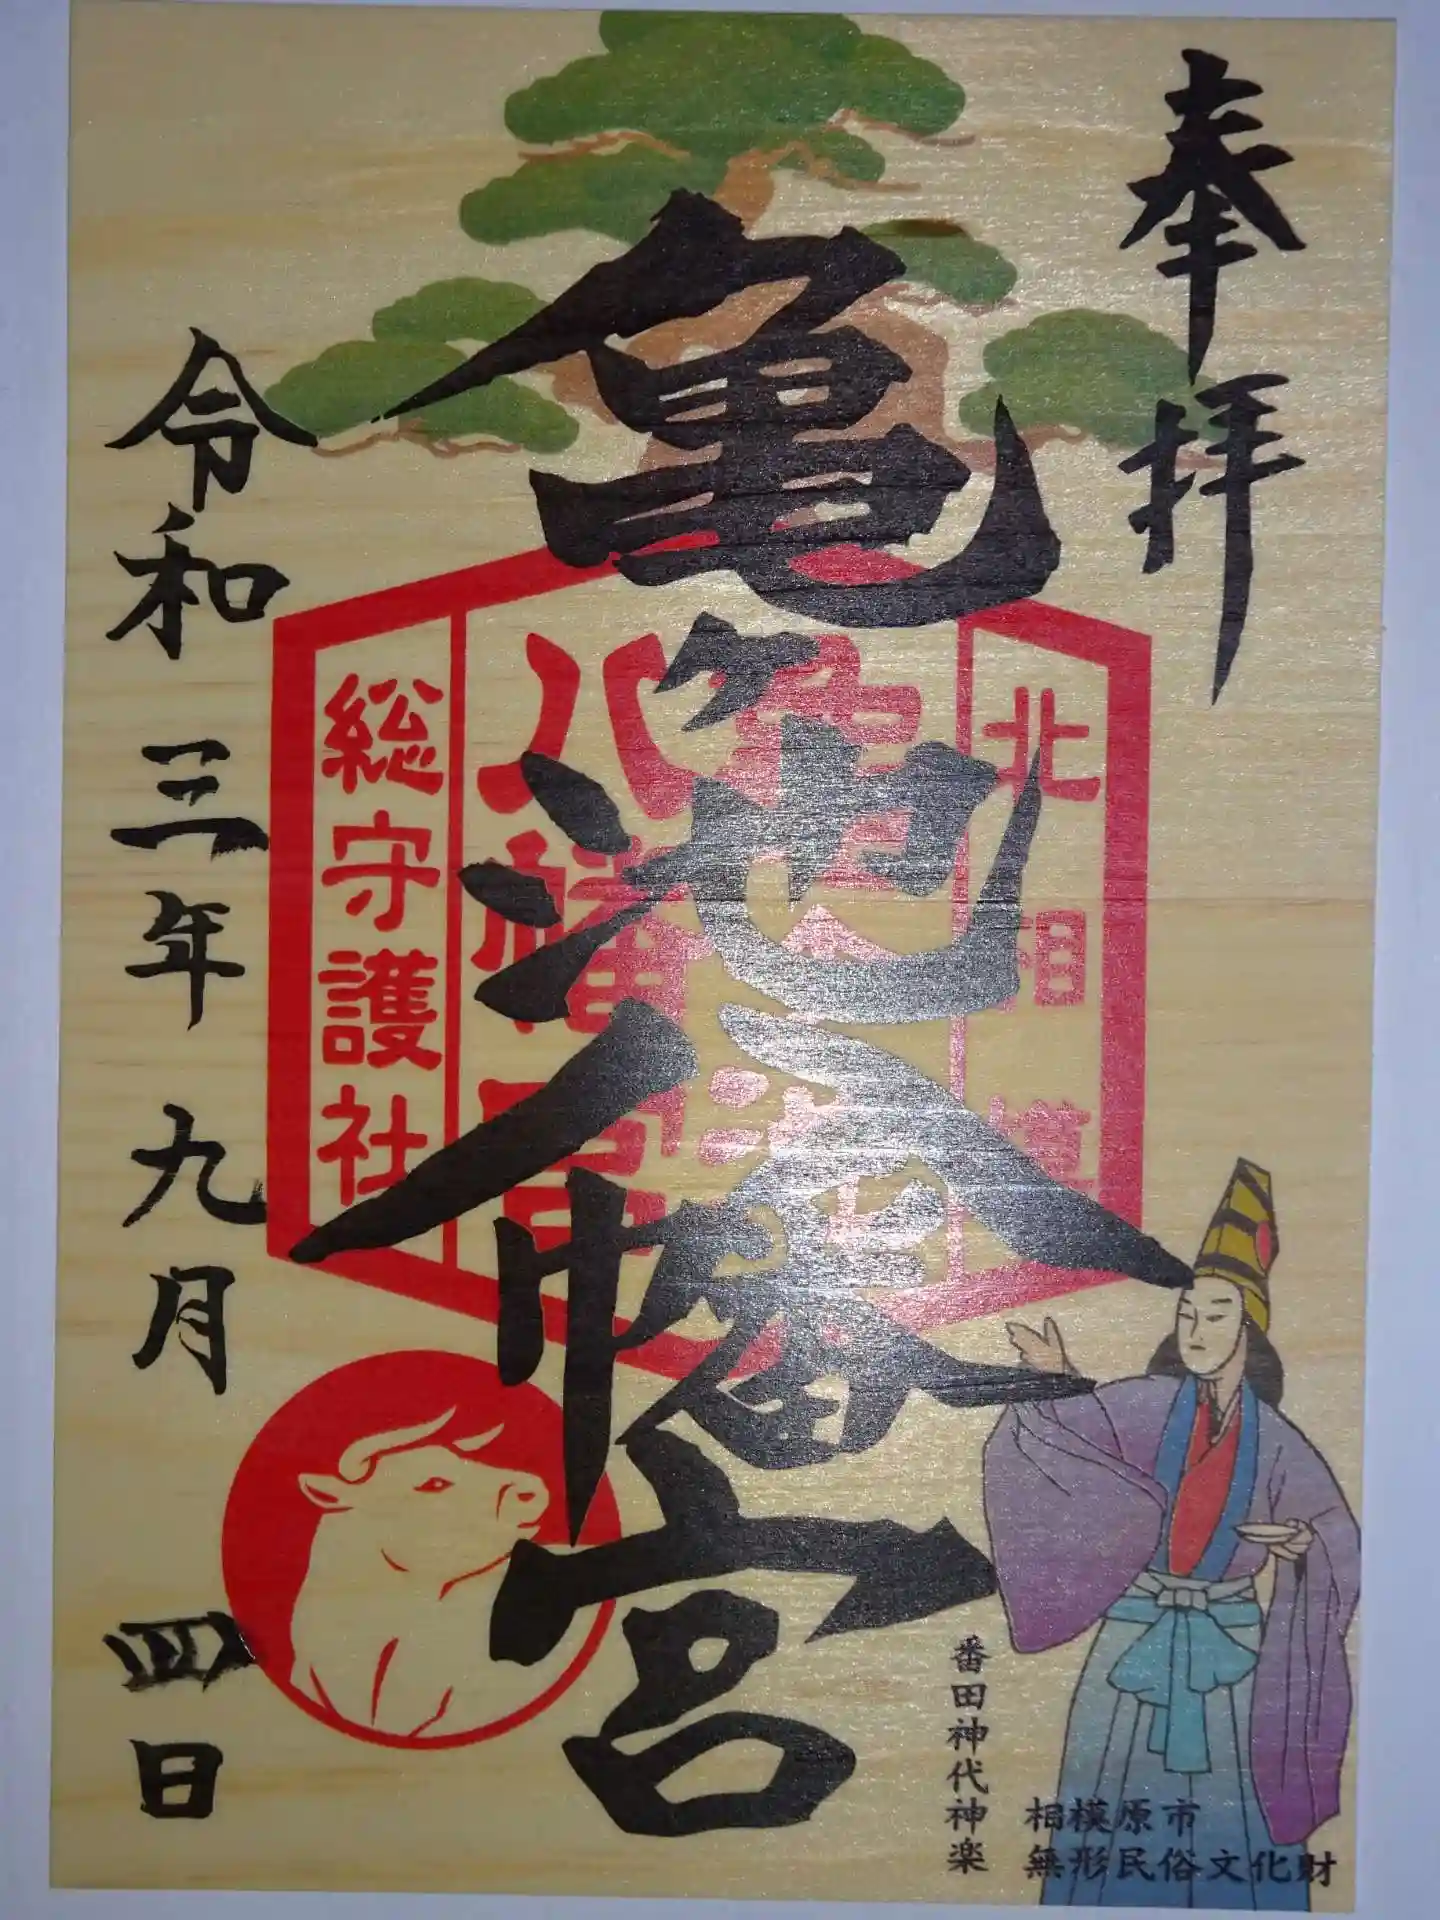 奉拝
亀ヶ池八幡宮
北相模
八幡宮
総守護社
令和三年九月四日
番田神代神楽
相模原市
無形民俗文化財